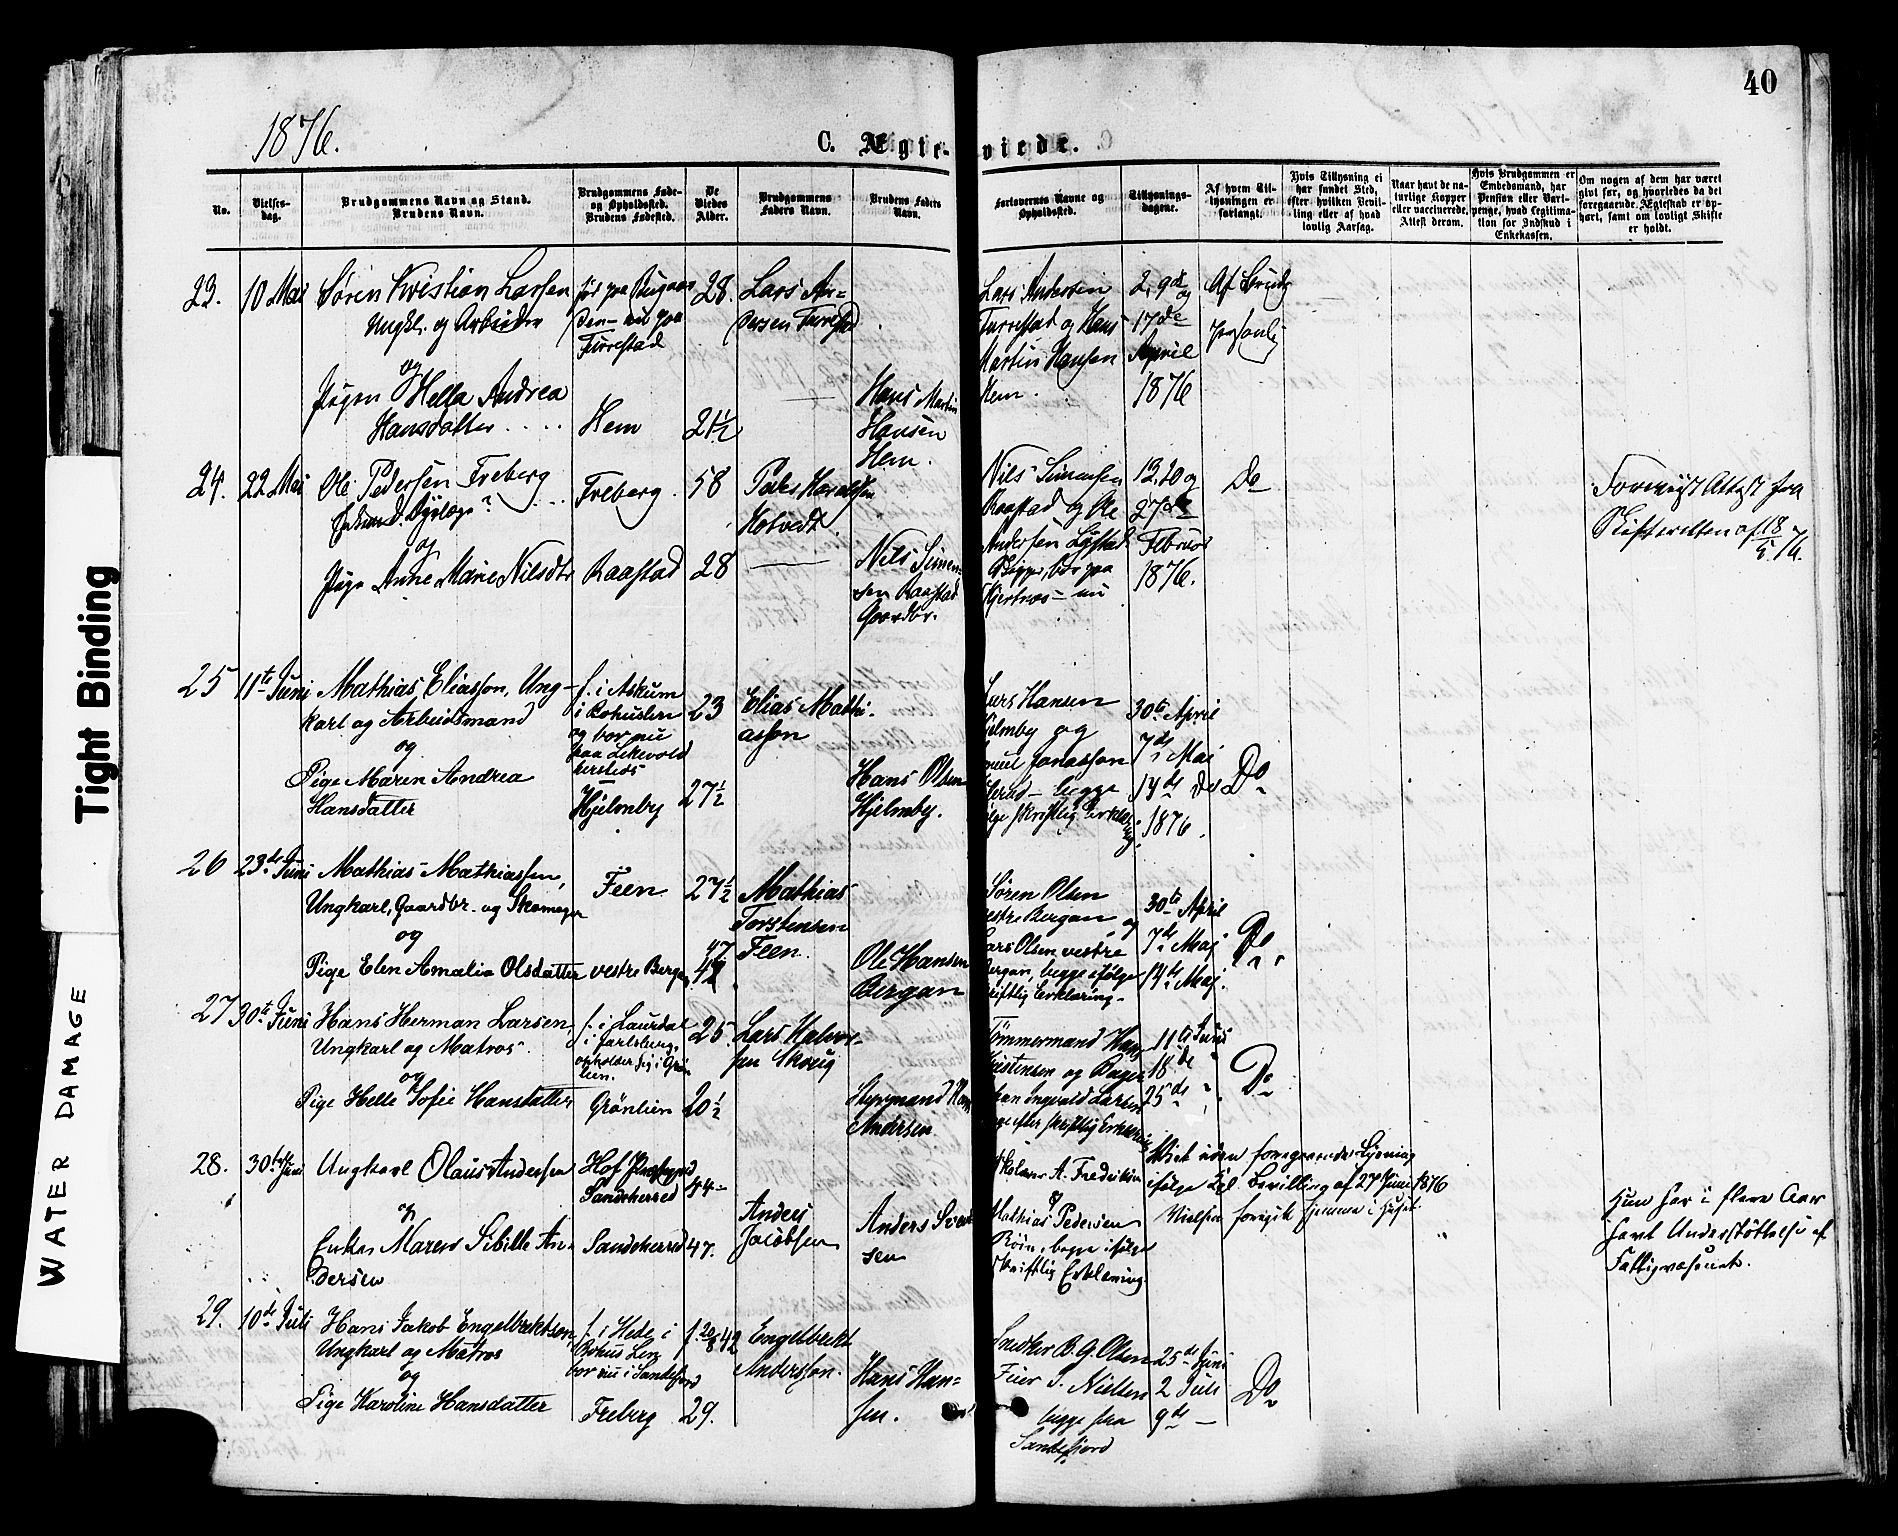 40
1876.
C. Ægteviede.
No.
Vielses-
dag.
Brudgommens Navn og Stand.
Brudens Navn.
Brudgommens Føde-
og Opholdssted.
Brudens Fødested.
De
Viedes
Alder.
Brudgommens
Faders Navn.
Brudens Faders
Navn.
Forlovernes Navne og
Opholdssted.
Tillysnings-
dagene.
Af hvem Til-
lysningen er
forlangt.
Hvis Tillysning ei
har fundet Sted,
efter hvilken Bevil-
ling eller af hvad
lovlig Aarsag.
Naar havt de na-
turlige Kopper
eller vaccinerede,
Attest derom.
Hvis Brudgommen er
Embedsmand, har
Pension eller Vart-
penge, hvad Legitima-
tion for Indskud i
Enkekassen.
Om nogen af dem har været
givt før, og hvorledes da det
foregaaende Ægteskab er op-
hørt, samt om lovligt Skifte
er holdt.
23.
10 Mai
Søren Kristian Larsen
Ungkl. og Arbeider
og
Pigen Hella Andrea
Hansdatter
Furrestad
Hem
28.
21½
Lars An-
dersen Furrestad
Hans Martin
Hansen
Hem.
Lars Andersen
Furrestad og Hans
Martin Hansen
Hem.
2, 9de og
17de
April
1876
Af Brudg.
24.
22 Mai
Ole Pedersen Freberg
og
Pige Anne Marie Nilsdtr
Freberg.
Raastad
58
28
Hotvedt
Nils Simen-
sen Raastad
Gaardbr.
Nils Simensen
Raastad og Ole
Andersen
13, 20 og
27de
Februar
1876.
Do
Foreviist Attest fra
Skifteretten af 18/5 76.
25
11te Juni
Mathias Eliasson, Ung-
karl og Arbeidsmand
og
Pige Maren Andrea
Hansdatter
f. i Askum
i Bohuslen
og bor nu
paa
Hjelmby
23
27½
Elias Mathi-
asson
Hans Olsen
Hjelmby.
Lars Hansen
Hjelmby og
Jonasson
begge
ifølge skriftlig Erklæring.
30te April
7de Mai
14de Do
1876.
Do
26
23de Juni
Mathias Mathiassen,
Ungkarl, Gaardbr. og Skomager
og
Pige Elen Amalia Olsdatter
Feen
vestre Bergan
27½
47
Mathias
Torstensen
Feen.
Ole Hansen
Bergan
Søren Olsen
vestre Bergan, og
Lars Olsen vestre
Bergan, begge ifølge
skriftlig Erklæring.
30te April
7de Maj
14de Maj.
Do
27
30te Juni
Hans Herman Larsen,
Ungkarl og Matros.
og
Pige Helle Sofie Hansdatter
f. i Laurdal
i Jarlsberg,
opholder sig i Grön-
lien.
Grönlien
25
20½
Lars Halvor-
sen Skoug
Styrmand Hans
Andersen
Tömmermand Hans
Kristensen og Bager
Johan Ingvald Larsen
begge efter skriftlig Erklæring
11te Juni
18de "
25de "
Do
28.
30te Juni
Ungkarl Olaus Andersen
og
Enke Maren Sibille An-
dersen
Hof Præstegjeld
Sandeherred
Sandeherred
44
47.
Anders
Jacobsen
Anders Svend-
sen
A. Fredriksen
og
Mathias Pedersen
begge ifølge
Skriftlig Erklæring.
Viet uden foregaaende Lysning
ifølge Kgl. Bevilling af 27 Juni 1876
Vielsen foregik hjemme i Huset.
Hun har i flere Aar
havt Understöttelse af
Fattigvæsenet.
29.
10de Juli
Hans Jakob Engelbrektson,
Ungkarl og Matros
og
Pige Karoline Hansdatter
f. i Hede i
Bohus Len
bor nu i Sandefjord
Freberg
f. 20/8 42
29.
Engelbrekt
Andersson.
Hans Han-
sen.
Snedker B. G. Olsen
S. Nielsen
begge fra
Sandefjord
25de Juni
2 Juli
9de —
Do
Tight Binding
WATER DAMAGE